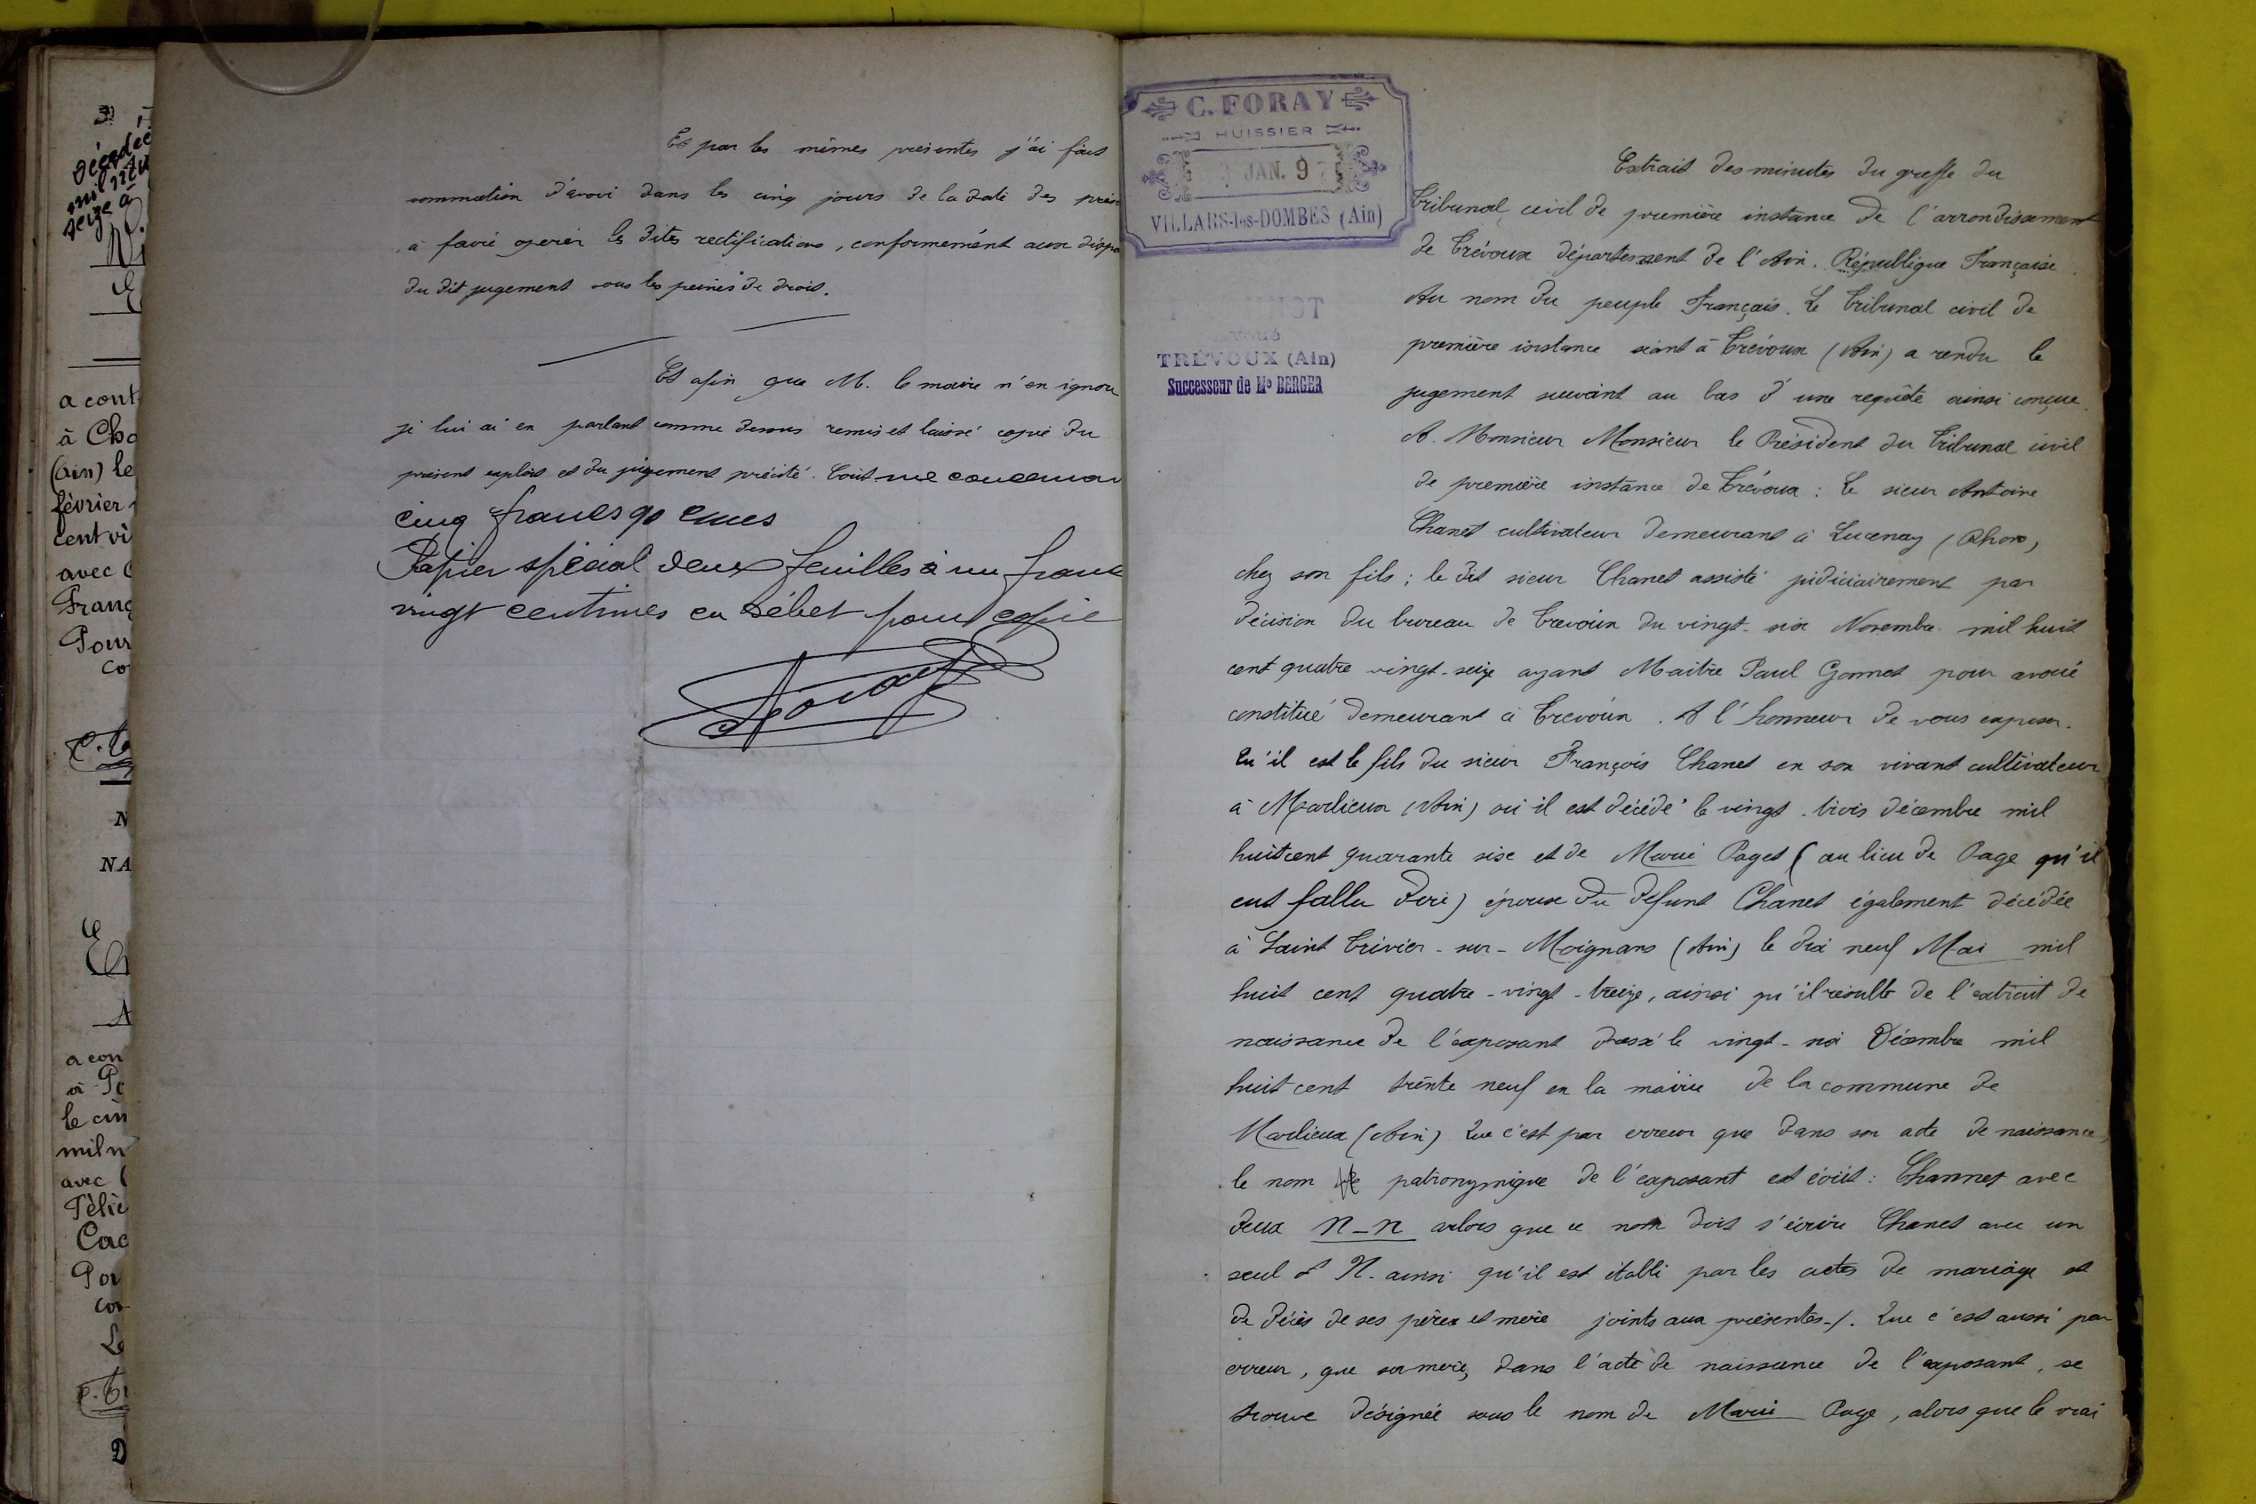 Et par les mêmes présentes j'ai fait
sommation d'avoir dans les cinq jours de la date des
à faire opérer les dites rectifications, conformément aux
du dit jugement sous les peines de droit.
Et afin que M. le maire n'en
je lui ai en parlant comme dessus remis et laissé copie du
présent exploit et du jugement précité. Coût
cinq francs 90 cmes
Papier spécial deux feuilles à un franc
vingt centimes en débet pour copie
Foray
C. FORAY
HUISSIER
JAN. 97
VILLARS-les-DOMBES (Ain)
TRÉVOUX (Ain)
Successeur de Me BERGER
Extrait des minutes du greffe du
Tribunal civil de première instance de l'arrondissement
de Trévoux département de l'Ain. République Française.
Au nom du peuple Français. Le Tribunal civil de
première instance séant à Trévoux (Ain) a rendu le
jugement suivant au bas d'une requête ainsi conçue.
A. Monsieur Monsieur le Président du Tribunal civil
de première instance de Trévoux : Le sieur Antoine
Chanet cultivateur demeurant à Lucenay (Rhone)
chez son fils ; le dit sieur Chanet assisté judiciairement par
décision du bureau de Trevoux du vingt-six Novembre mil huit
cent quatre vingt-seize ayant Maitre Paul Gonnet pour avoué
constitué demeurant à Trevoux. A l'honneur de vous exposer.
Qu'il est le fils du sieur François Chanet en son vivant cultivateur
à Marlieux (Ain) où il est décédé le vingt-trois décembre mil
huit cent quarante six et de Marie Paget (au lieu de Page qu'il
eut fallu dire) épouse du défunt Chanet également décédée
à Saint Trivier-sur-Moignans (Ain) le dix neuf Mai mil
huit cent quatre-vingt-treize, ainsi qu'il résulte de l'extrait de
naissance de l'exposant dressé le vingt-six Décembre mil
huit cent trente neuf en la mairie de la commune de
Marlieux (Ain) Que c'est par erreur que dans son acte de naissance,
le nom patronymique de l'exposant est écrit : Channet avec
deux n-n alors que ce nom doit s'écrire Chanet avec un
seul N. ainsi qu'il est établi par les actes de mariage et
de décès de ses pères et mère joints aux présentes-/. Que c'est aussi par
erreur, que sa mère, dans l'acte de naissance de l'exposant, se
trouve désignée sous le nom de Marie Page, alors que le vrai